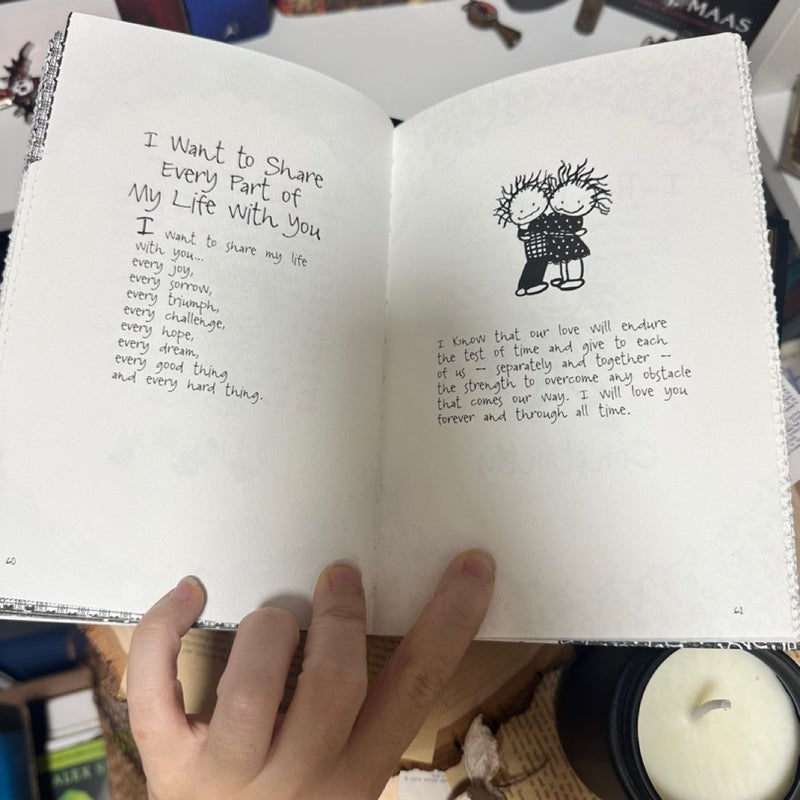 I Want to Share
Every Part of
My Life with You
I want to share my life
with you...
every joy,
every sorrow,
every triumph,
every challenge,
every hope,
every dream,
every good thing
and every hard thing.
60
I know that our love will endure
the test of time and give to each
of us — separately and together —
the strength to overcome any obstacle
that comes our way. I will love you
forever and through all time.
61
MAAS
ALEX